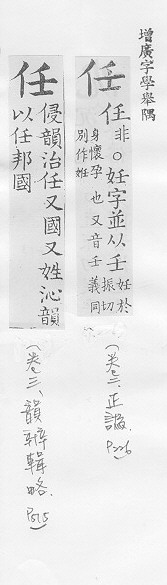 增廣字學舉隅
任
任非○妊字並以壬妊於
身懷孕也又音壬義同
別作姙
振切
(卷三、正譌、P226)
任
侵韻治任又國又姓沁韻
以任邦國
(卷三、韻辨輯略、P515)